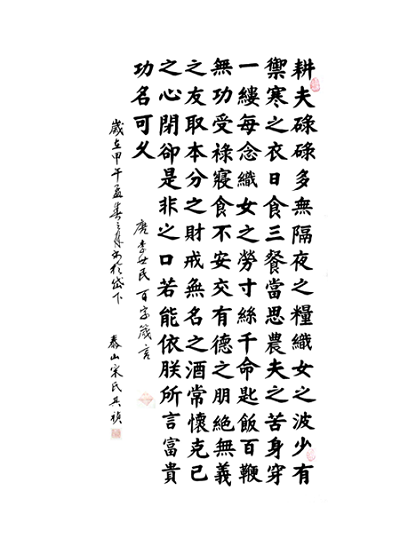 耕夫碌碌多無隔夜之糧織女之波少有
禦寒之衣日食三餐當思農夫之苦身穿
一縷每念織女之勞寸絲千命匙飯百鞭
無功受祿寢食不安交有德之朋絕無義
之友取本分之財戒無名之酒常懷克己
之心閉卻是非之口若能依朕所言富貴
功名可久
唐李世民百字箴言
歲在甲午孟春之月書於岱下 泰山宋氏